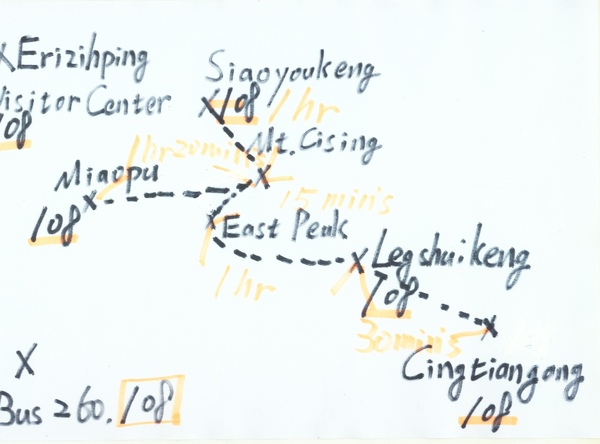 Erizihping
Visitor Center
108
Siaoyoukeng
108
1 hr
Mt. Cising
1hr20mins
Miaopu
108
15 mins
East Peak
1 hr
Legshuikeng
108
30mins
Cingtiangang
108
Bus 260. 108